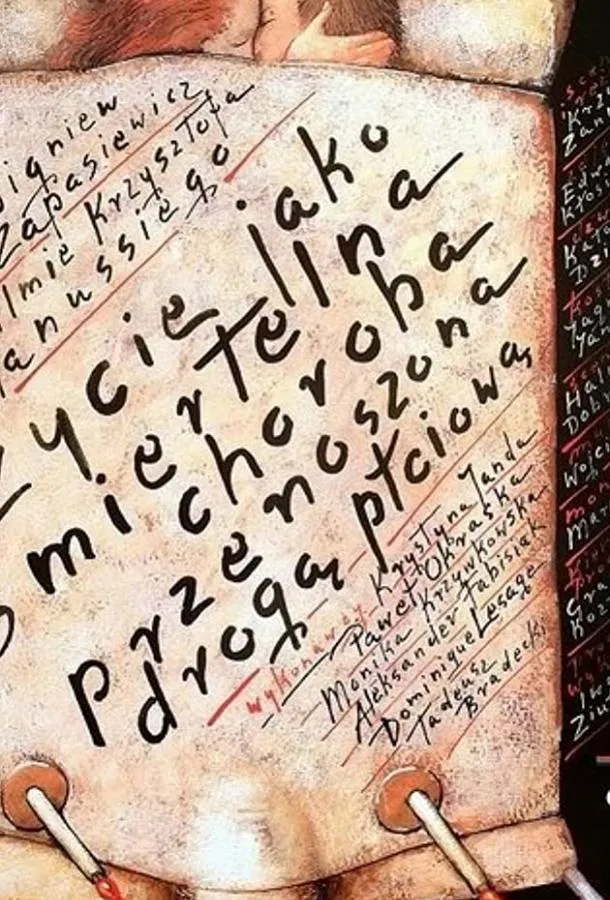 igniew
Zapasiewicz
ilmie Krzysztofa
anussiego
życie jako
śmiertelna
choroba
przenoszona
drogą płciową
wykonawcy Krystyna Janda
Paweł Okraska
Monika Krzywkowska
Aleksander Fabisiak
Dominique Lesage
Tadeusz
Bradecki
sce
Krz
Zan
Edw
Kłos
Dzi
Jag
Hali
Dob
Wojci
mon
Mar
Gra
Koz